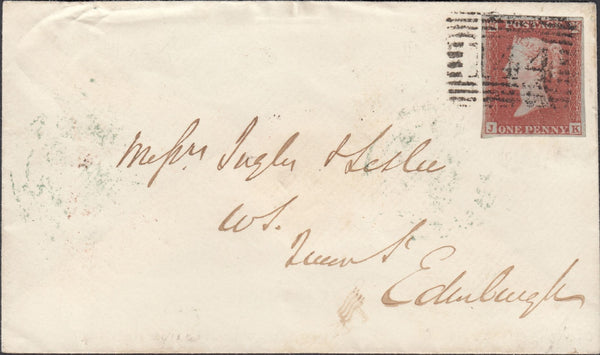 POSTAGE
J ONE PENNY K
Messrs Inglis & Leslie
W.S.
Queen St
Edinburgh